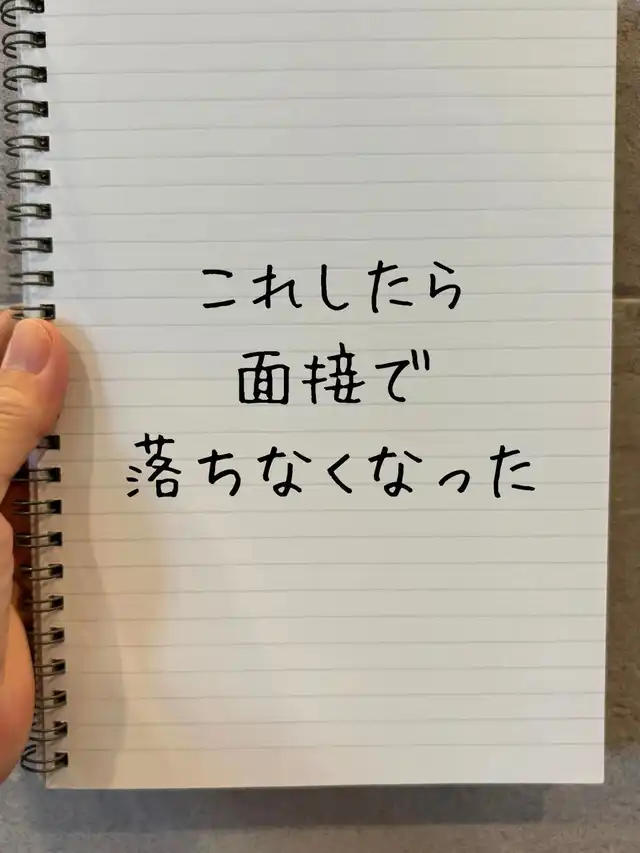 これしたら
面接で
落ちなくなった